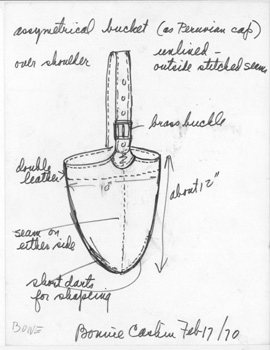 assymetrical bucket (as Peruvian cap)
over shoulder
unlined -
outside stitched seams
brass buckle
double
leather
10"
about 12"
seam on
either side
short darts
for shaping
BONE
Bonnie Cashin Feb 17/70